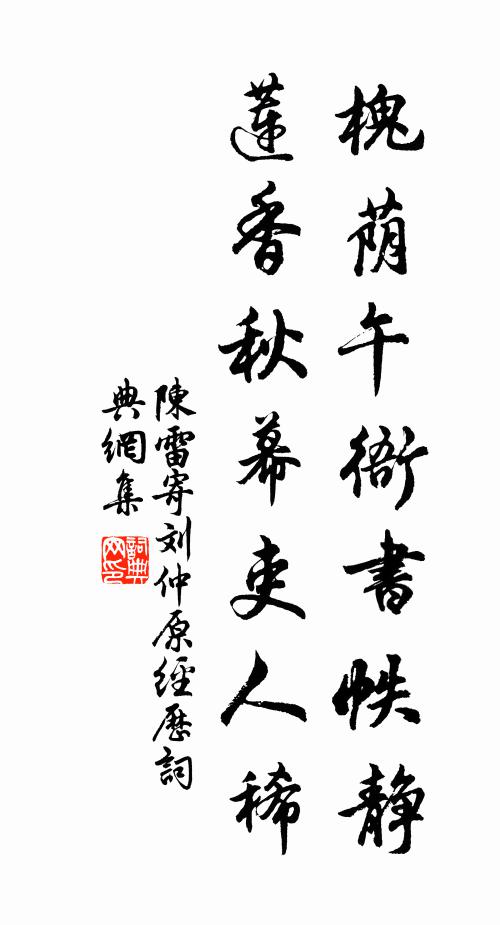 槐荫午衙書帙静
蓮香秋幕吏人稀
陳雷寄刘仲原經歷詞
典網集
詞典網印